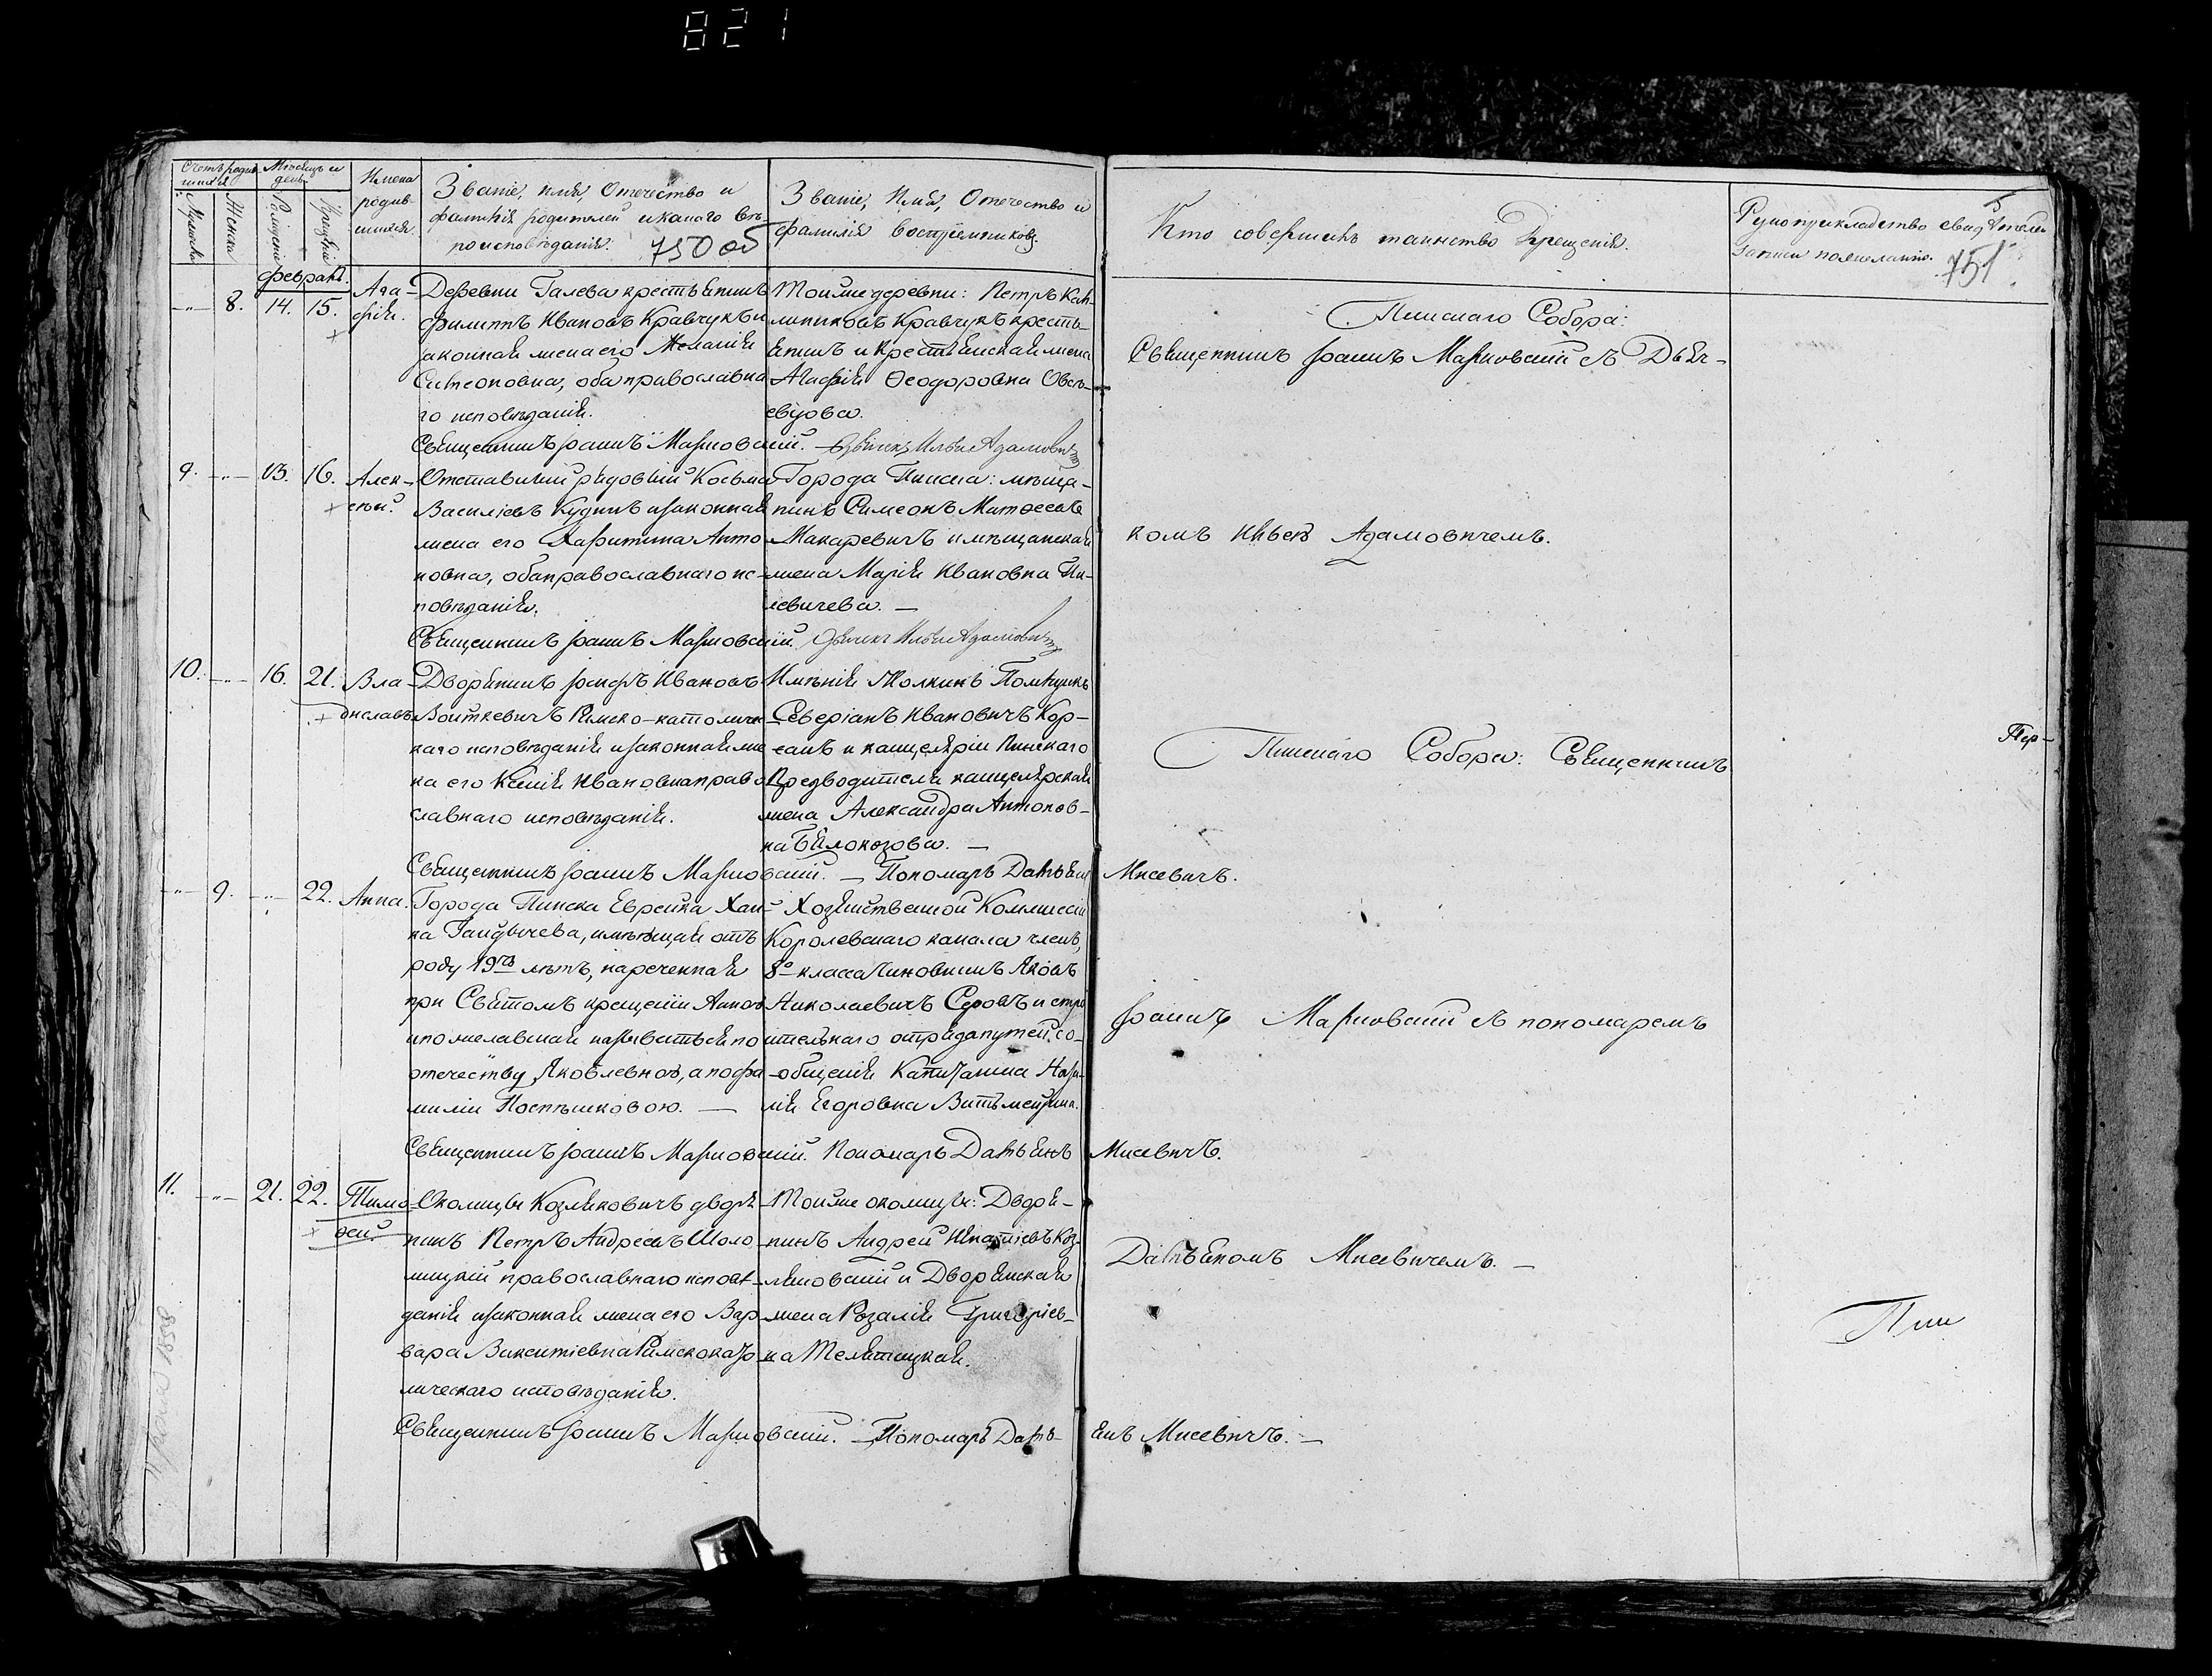 821
Счетъ родив-
шихся
Мѣсяцъ и
день.
Мужеска
Женска
Рожденія
Крещенія
Имена
родив-
шихся.
Званіе, имя, Отечество и
фамилія родителей и какого вѣ-
роисповѣданія.
750 об
Званіе, Имя, Отечество и
фамилія воспріемниковъ.
Кто совершилъ таинство Крещенія.
Рукоприкладство свидѣтелей
записи по желанію.
751
февраль.
-"- 8. 14. 15.
Ага-
фія.
Деревни Галева крестьянинъ
филиппъ Ивановъ Кравчукъ и
законная жена его Меланія
Симеоновна, оба православна-
го исповѣданія.
Тойже деревни: Петръ
Кравчукъ кресть-
янинъ и Крестьянская жена
Агафія Ѳеодоровна Овсѣ-
евцова.
Священникъ Іоаннъ Марновскій. Дьячекъ Илья Адамовичъ
Пинскаго Собора:
Священникъ Іоаннъ Марновскій съ Дьяч-
9. -"- 13. 16.
Алек-
сѣй.
Отставный рядовый Косьма
Василіевъ Кудинъ и законная
жена его Харитина Анто-
новна, оба православнаго ис-
повѣданія.
Города Пинска: мѣща-
нинъ Симеонъ Матѳеевъ
Макаревичъ и мѣщанская
жена Марія Ивановна Пи-
левичева. —
Священникъ Іоаннъ Марновскій. Дьячекъ Илья Адамовичъ
комъ Ильею Адамовичемъ.
10. -"- 16. 21.
Вла-
диславъ
Дворянинъ Іосифъ Ивановъ
Войткевичъ Римско-католичес-
каго исповѣданія и законная же-
на его Ксенія Ивановна право-
славнаго исповѣданія.
Имѣнія Жолкинъ Помѣщикъ
Северіанъ Ивановичъ Кор-
сакъ и канцеляріи Пинскаго
Предводителя канцелярская
жена Александра Антонов-
на Бѣлокозова. —
Священникъ Іоаннъ Марновскій. — Пономарь Даміянъ Мисевичъ.
Пинскаго Собора: Священникъ
Пер-
-"- 9. -"- 22.
Анна.
Города Пинска Еврейка Хай-
ка Гайдычева, имѣющая отъ
роду 19ть лѣтъ, нареченная
при Святомъ крещеніи Анною
и пожелавшая называться по
отечеству Яковлевною, а по фа-
миліи Поспѣшковою. —
Хозяйственной Коммиссіи
Королевскаго канала членъ,
8го класса Чиновникъ Яковъ
Николаевичъ Серовъ и стро-
ительнаго отряда путей со-
общенія Капитанша
Егоровна
Священникъ Іоаннъ Марновскій. Пономарь Даміянъ Мисевичъ.
Іоаннъ Марновскій съ пономаремъ
11. -"- 21. 22.
Тимо-
ѳей.
Околицы Козляковичъ дворя-
нинъ Петръ Андреевъ Шоло-
мицкій православнаго исповѣ-
данія и законная жена его Вар-
вара Викентіевна Римскокато-
лическаго исповѣданія.
Тойже околицы: Дворя-
нинъ Андрей Игнатіевъ Коз-
ляковскій и Дворянская
жена Розалія Григоріев-
на Телятицкая.
Священникъ Іоаннъ Марновскій. — Пономарь Даміянъ Мисевичъ. —
Даміяномъ Мисевичемъ. —
Пин